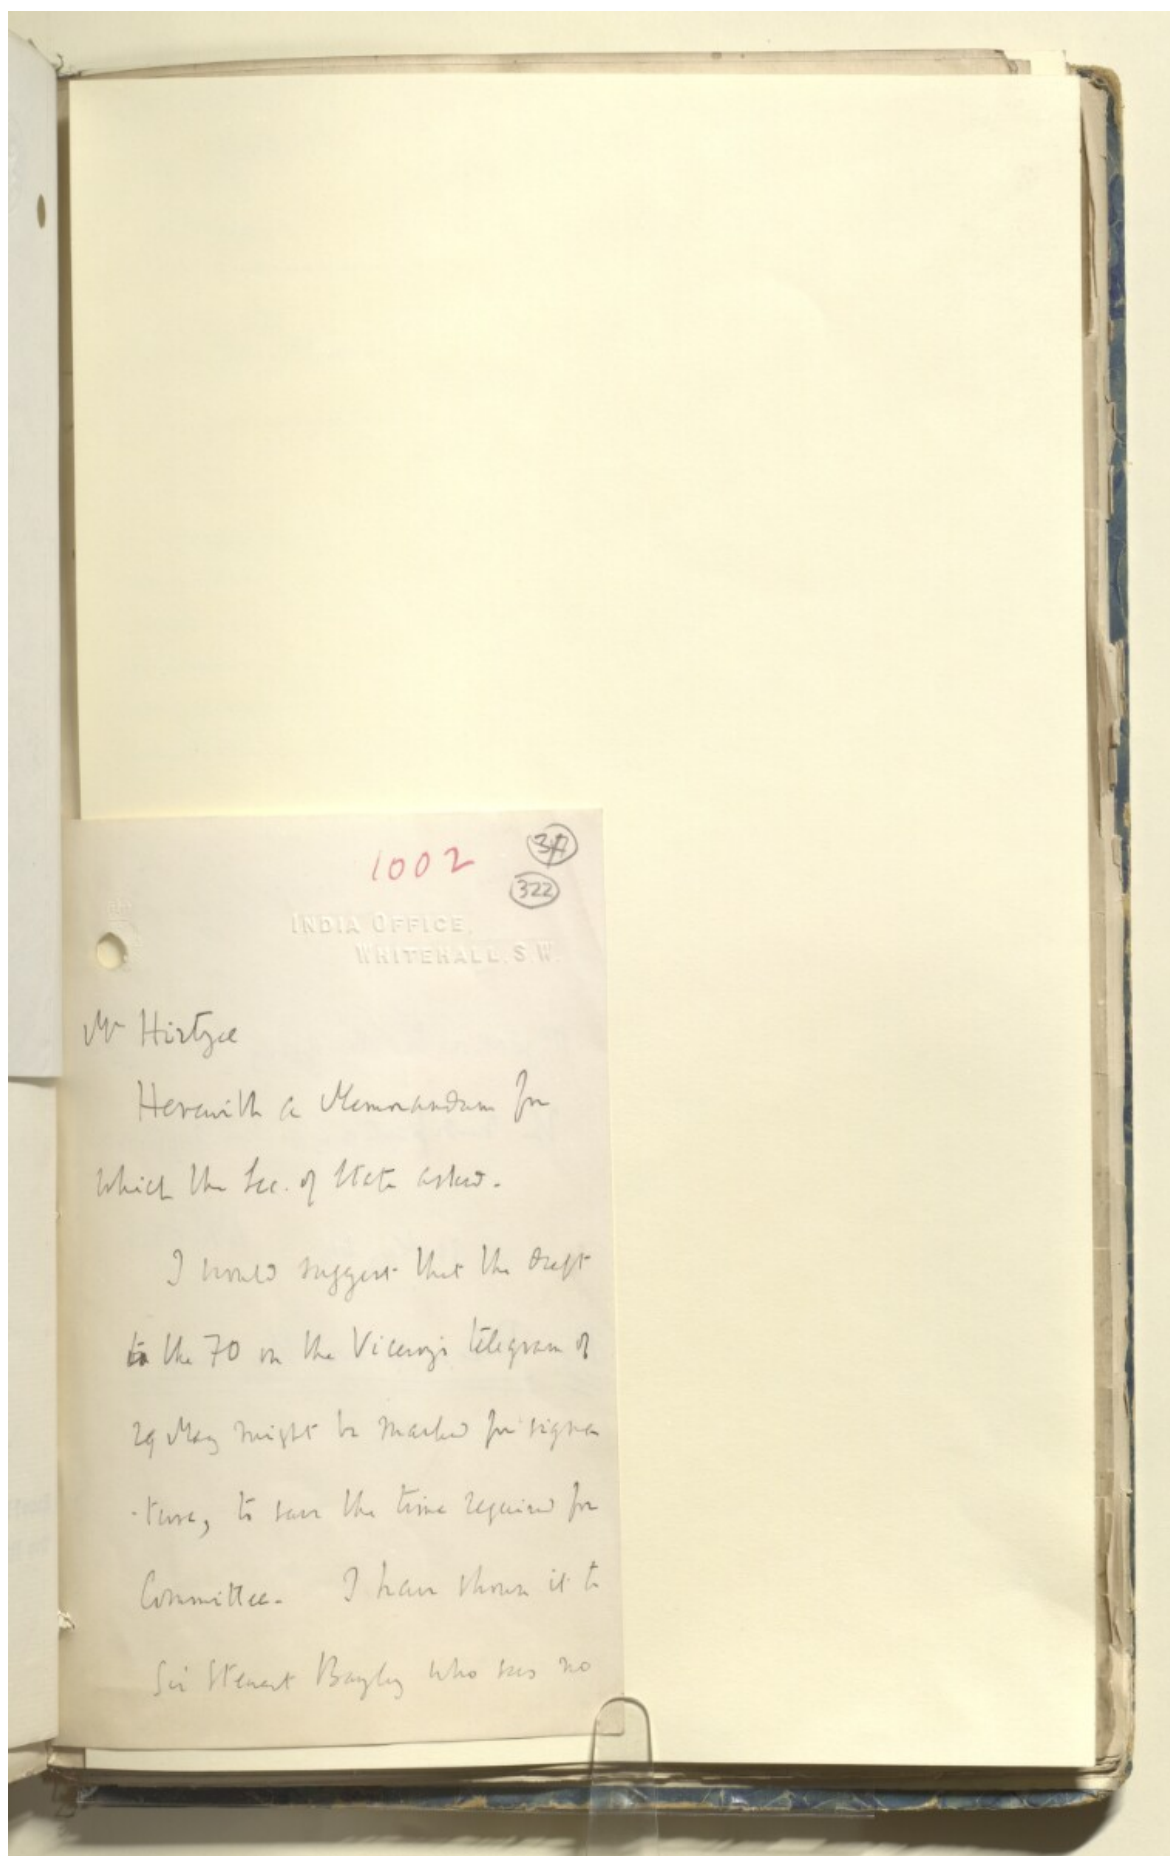 1002
322
INDIA OFFICE,
WHITEHALL, S.W.
Mr Hirtzel
Herewith a Memorandum for
which the Sec. of State asked.
I would suggest that the draft
to the FO on the Viceroy's telegram of
29 May might be marked for signa
-ture, to save the time required for
Committee. I have shown it to
Sir Steuart Bayley who sees no